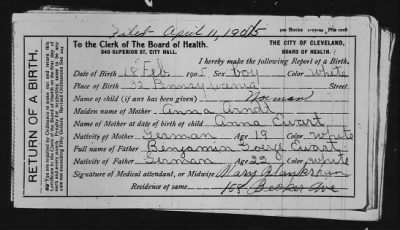 Filed April 11, 1905
200 Books
To the Clerk of The Board of Health.
340 SUPERIOR ST. CITY HALL.
THE CITY OF CLEVELAND,
BOARD OF HEALTH.
I hereby make the following Report of a Birth.
Date of Birth 18 Feb 1905 Sex boy Color White
Place of Birth 32 Pennsylvania Street.
Name of child (if any has been given) Norman
Maiden name of Mother Anna Arndt
Name of Mother at date of birth of child Anna Ewart
Nativity of Mother German Age 19 Color White
Full name of Father Benjamin George Ewart
Nativity of Father German Age 22 Color White
Signature of Medical attendant, or Midwife Mary
Residence of same, Becker Ave
RETURN OF A BIRTH.